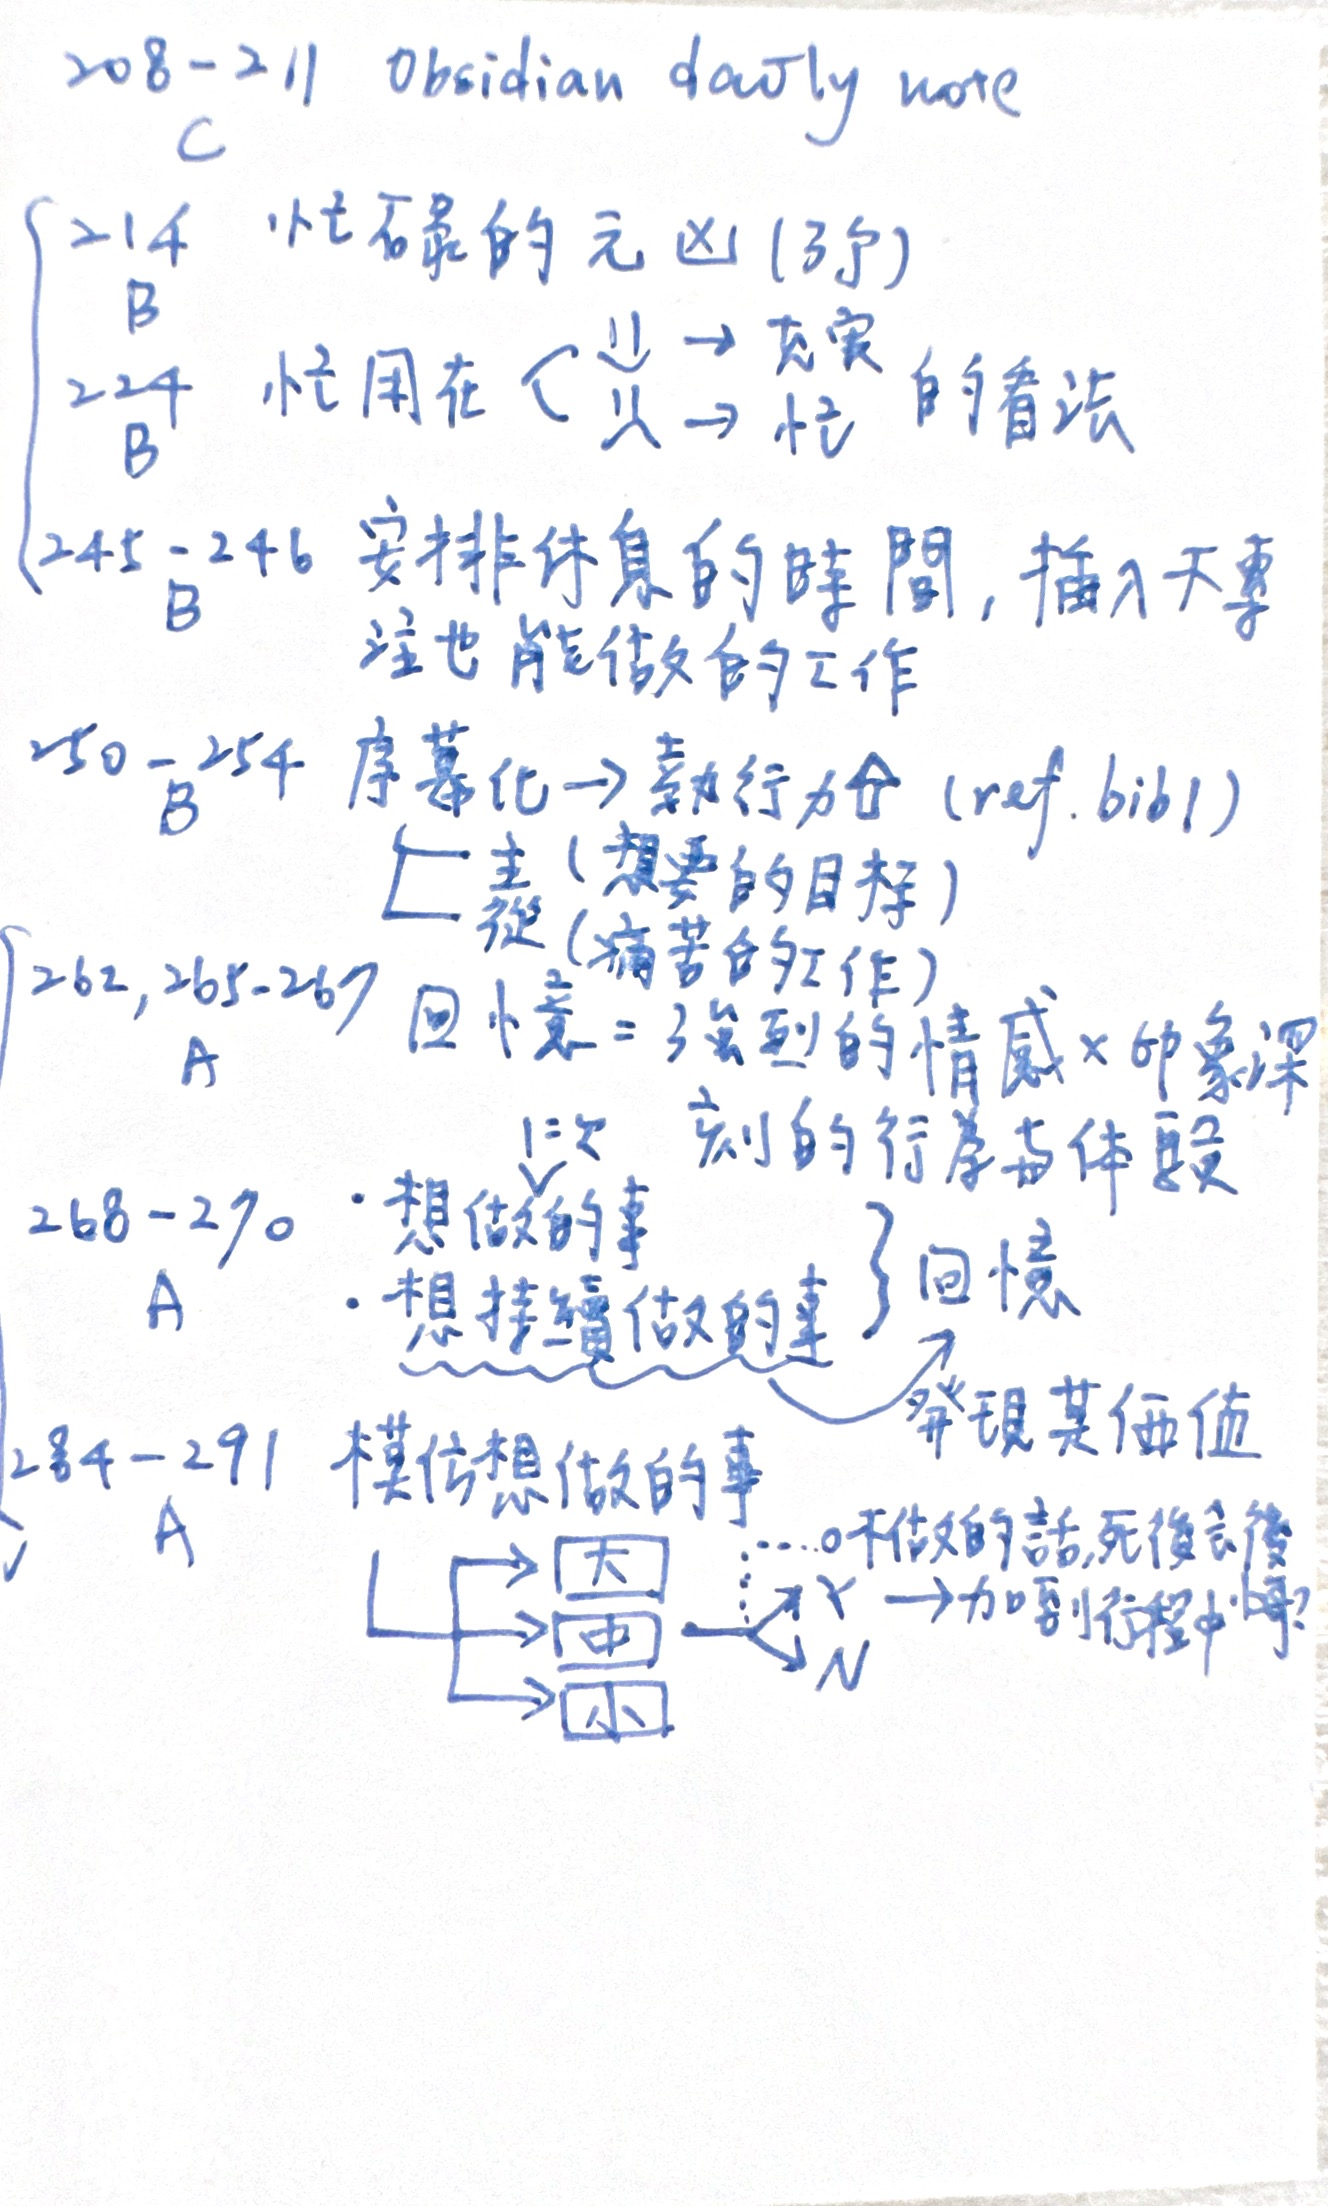 208-211 Obsidian daily note
C
214 忙碌的元凶(3別)
B
224 忙用在 → 充実 的看法
B → 忙
245-246 安排休息的時間,插入不專
B 注也能做的工作
250-254 序幕化→執行力⇧(ref.bib1)
B 主(想要的目標)
從(痛苦的工作)
262,265-267 回憶=強烈的情感×印象深
A 刻的行為与体驗
1=次
268-270 ・想做的事
A ・想持續做的事 } 回憶
發現其価値
284-291 模仿想做的事
A
大 不做的話,死後会後悔?
中 Y → 加到行程中
N
小